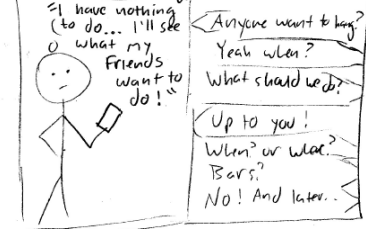 "I have nothing
to do... I'll see
what my
Friends
want to
do!"
Anyone want to hang?
Yeah when?
What should we do?
Up to you!
When? or what?
Bars?
No! And later..